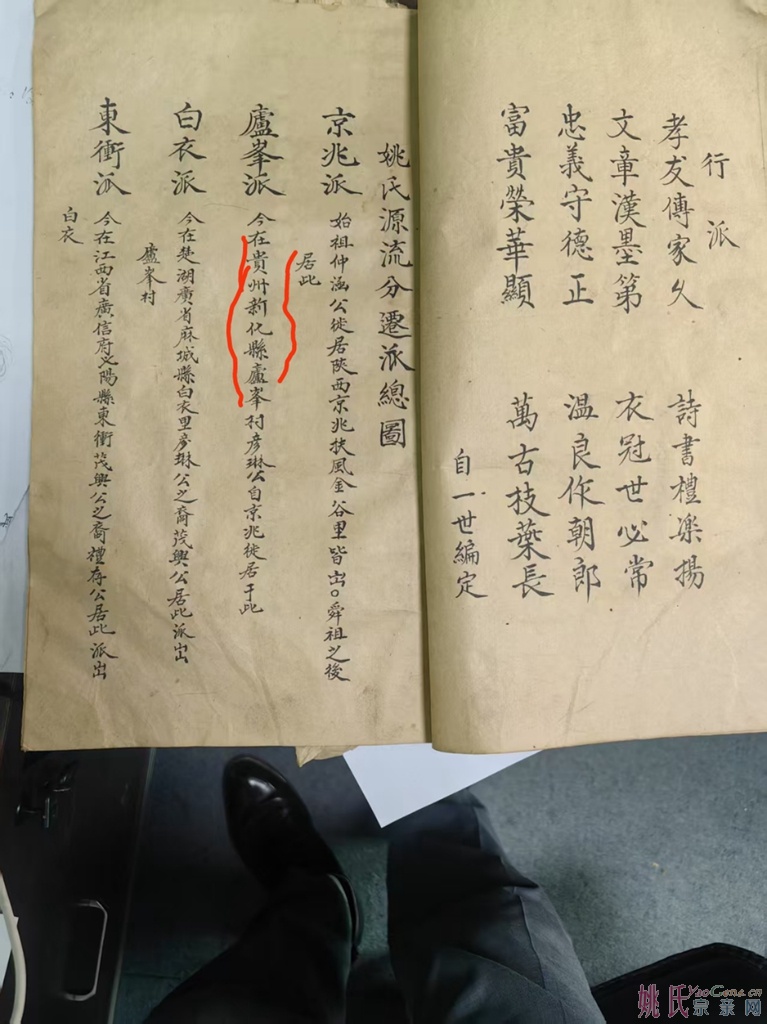 行派
孝友傳家久 詩書禮樂揚
文章漢墨第 衣冠世必常
忠義守德正 温良作朝郎
富貴榮華顯 萬古技葉長
自一世編定
姚氏源流分遷派總圖
京兆派 始祖仲涵公徙居陝西京兆扶風金谷里皆出。舜祖之後
居此
廬峯派 今在貴州新化縣廬峯村彥琳公自京兆徙居于此
白衣派 今在楚湖廣省麻城縣白衣里彥琳公之裔茂興公居此派出
廬峯村
東衝派 今在江西省廣信府弋陽縣東衝茂興公之裔禮存公居此派出
白衣
姚氏宗亲网
YaoGens.cn